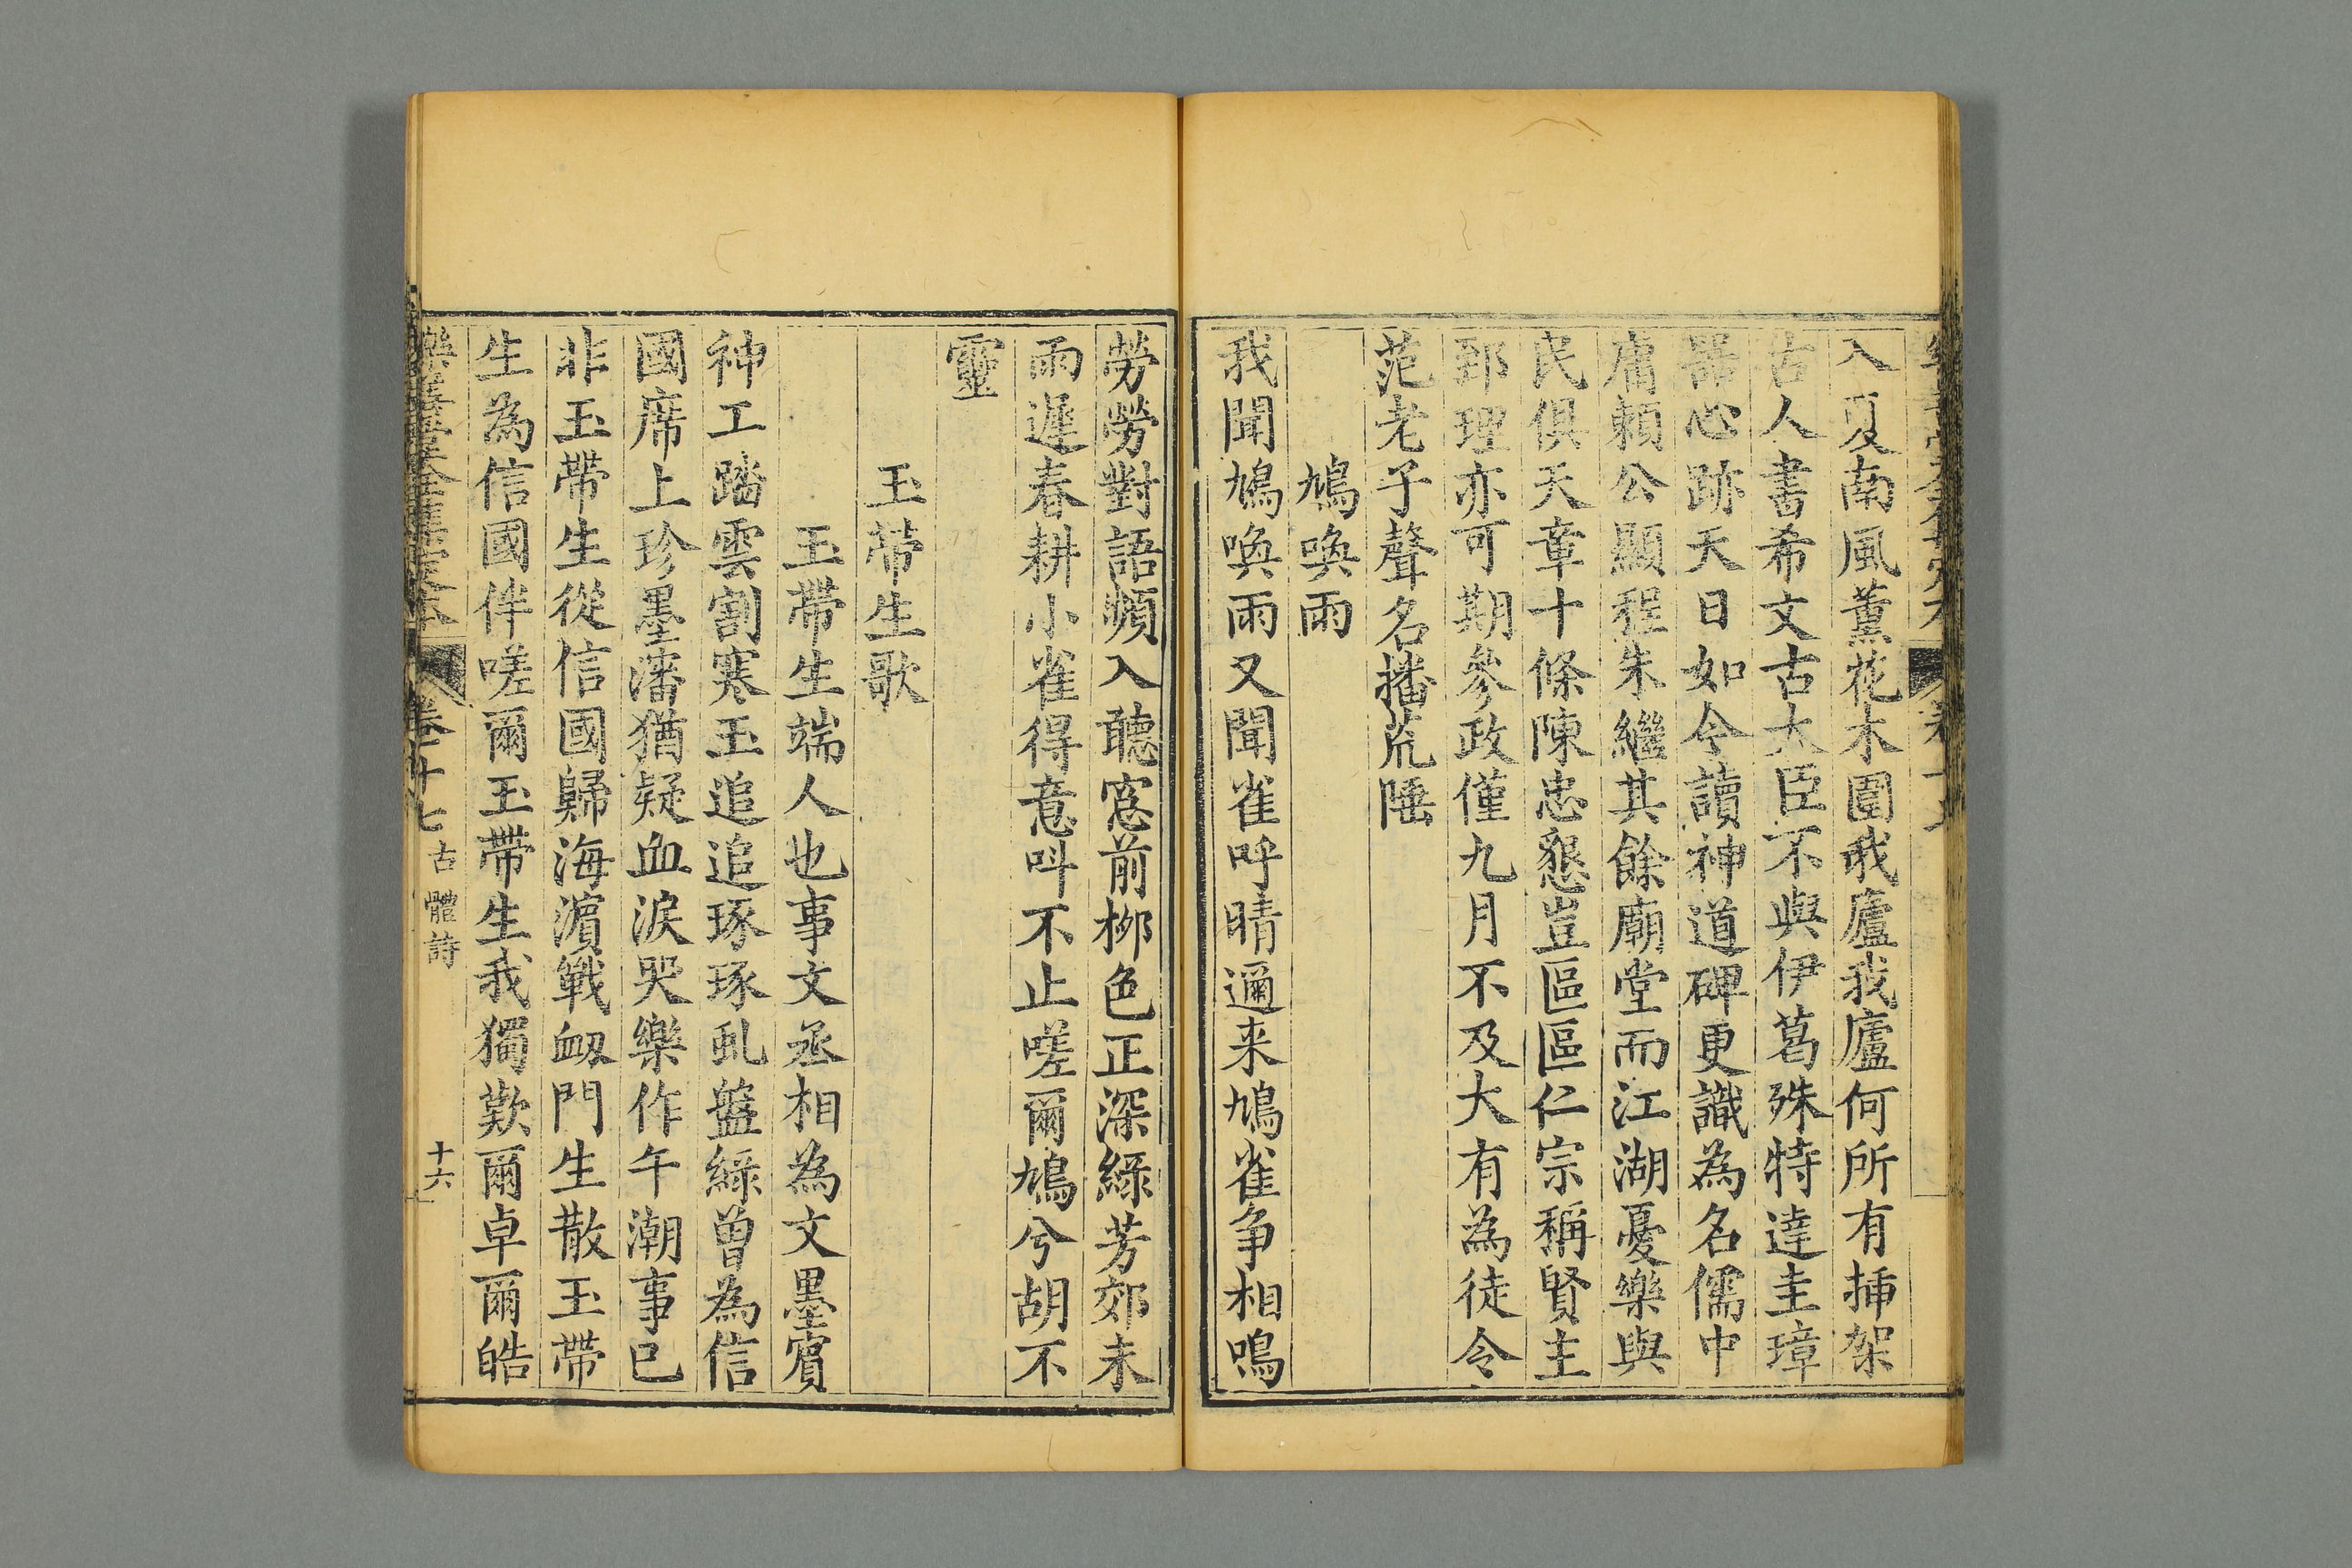 入夏南風薰花木圍我廬我廬何所有揷架
古人書希文古大臣不與伊葛殊特達圭璋
器心跡天日如今讀神道碑更識為名儒中
庸賴公顯程朱繼其餘廟堂而江湖憂樂與
民俱天章十條陳忠懇豈區區仁宗稱賢主
郅理亦可期參政僅九月不及大有為徒令
范老子聲名播荒陲
鳩喚雨
我聞鳩喚雨又聞雀呼晴邇来鳩雀争相鳴
勞勞對語頻入聽窓前栁色正深綠芳郊未
雨遲春耕小雀得意呌不止嗟爾鳩兮胡不
靈
玉帶生歌
玉帶生端人也事文丞相為文墨賓
神工踏雲割寒玉追追琢琢虬盤綠曽為信
國席上珍墨瀋猶疑血淚哭樂作午潮事已
非玉帶生從信國歸海濵戰衂門生散玉帶
生為信國伴嗟爾玉帶生我獨歎爾卓爾皓
樂善堂全集定本
卷十七 古體詩
十六